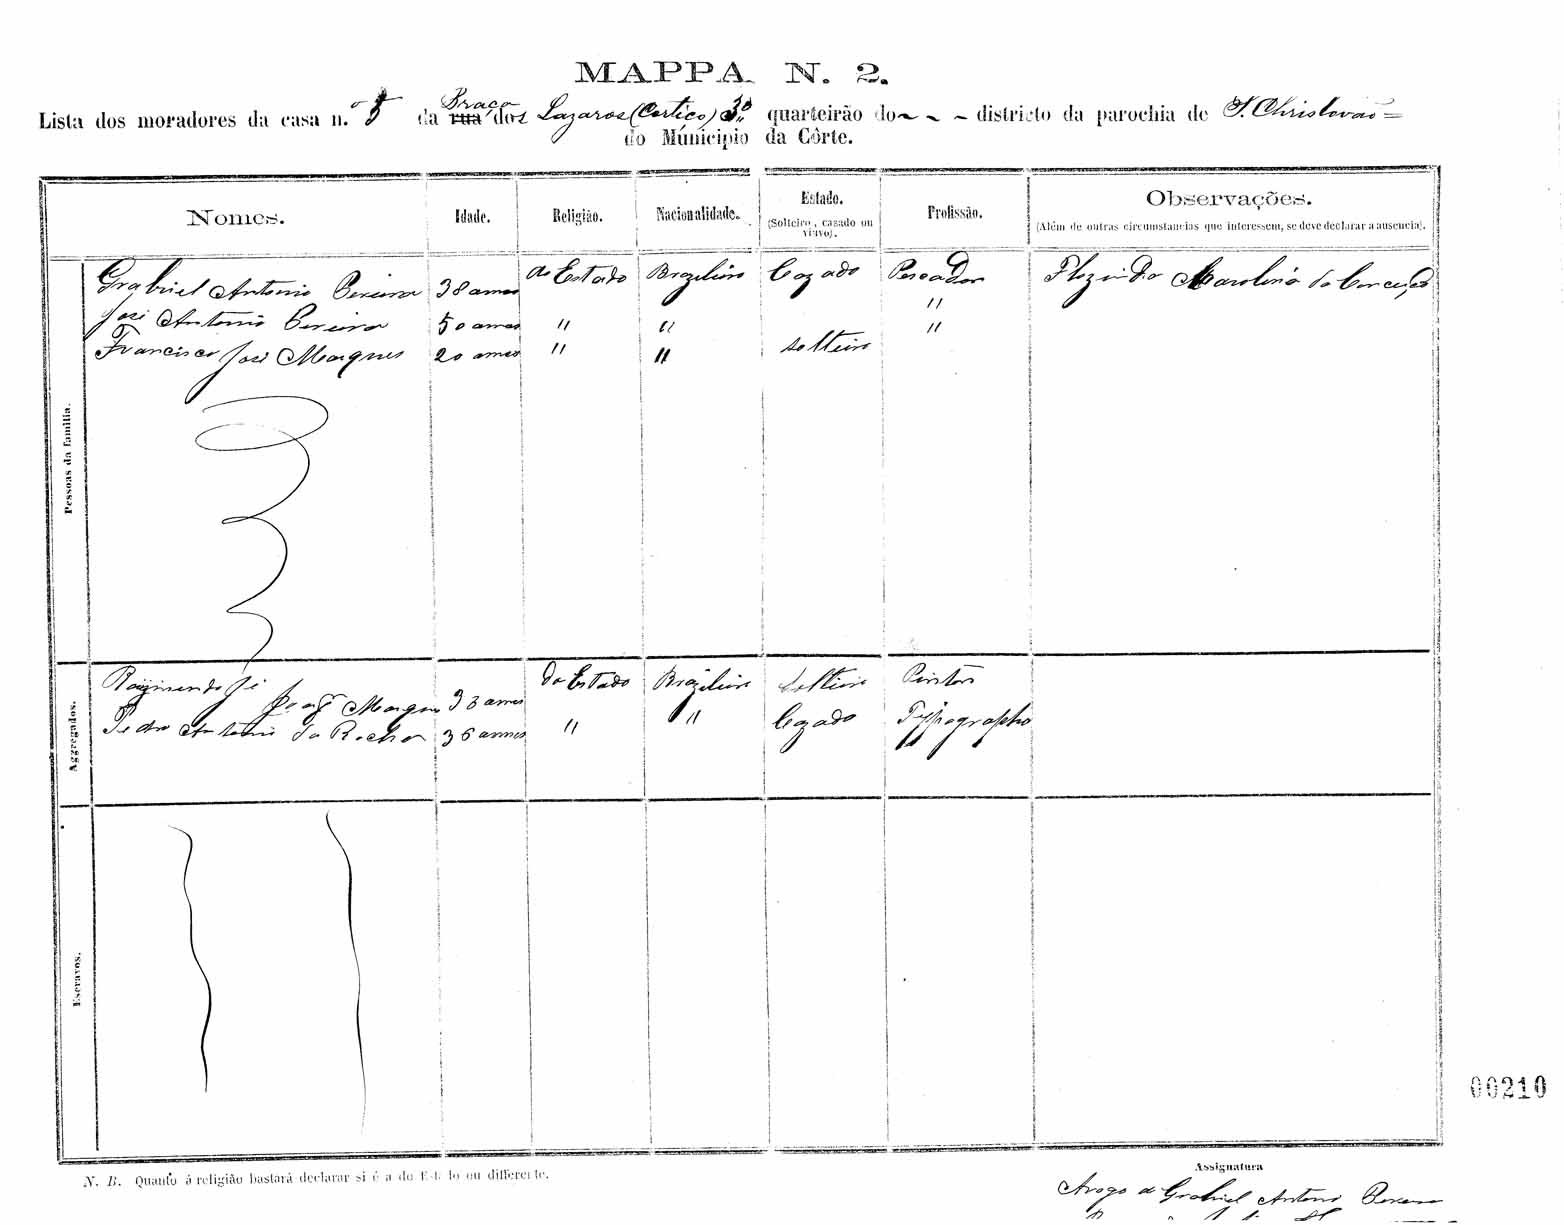 MAPPA N. 2.
Lista dos moradores da casa n.º 5 da rua Praça dos Lazaros (Cortiço) 3º quarteirão do districto da parochia de S. Christovão
do Municipio da Côrte.
Nomes. Idade. Religião. Nacionalidade. Estado. (Solteiro, casado ou viuvo). Profissão. Observações. (Além de outras circumstancias que interessem, se deve declarar a ausencia).
Pessoas da familia.
Grabriel Antonio Pereira 38 annos do Estado Brazileiro Cazado Pescador Carolina da Conceição
José Antonio Pereira 50 annos " " "
Francisco José Marques 20 annos " " solteiro "
Aggregados.
Raymundo José Marques 33 annos do Estado Brazileiro Solteiro Pintor
Pedro Antonio da Rocha 36 annos " " Cazado Typographo
Escravos.
00210
N. B. Quanto á religião bastará declarar si é a do Estado ou differente.
Assignatura
Arogo de Grabriel Antonio Pereira